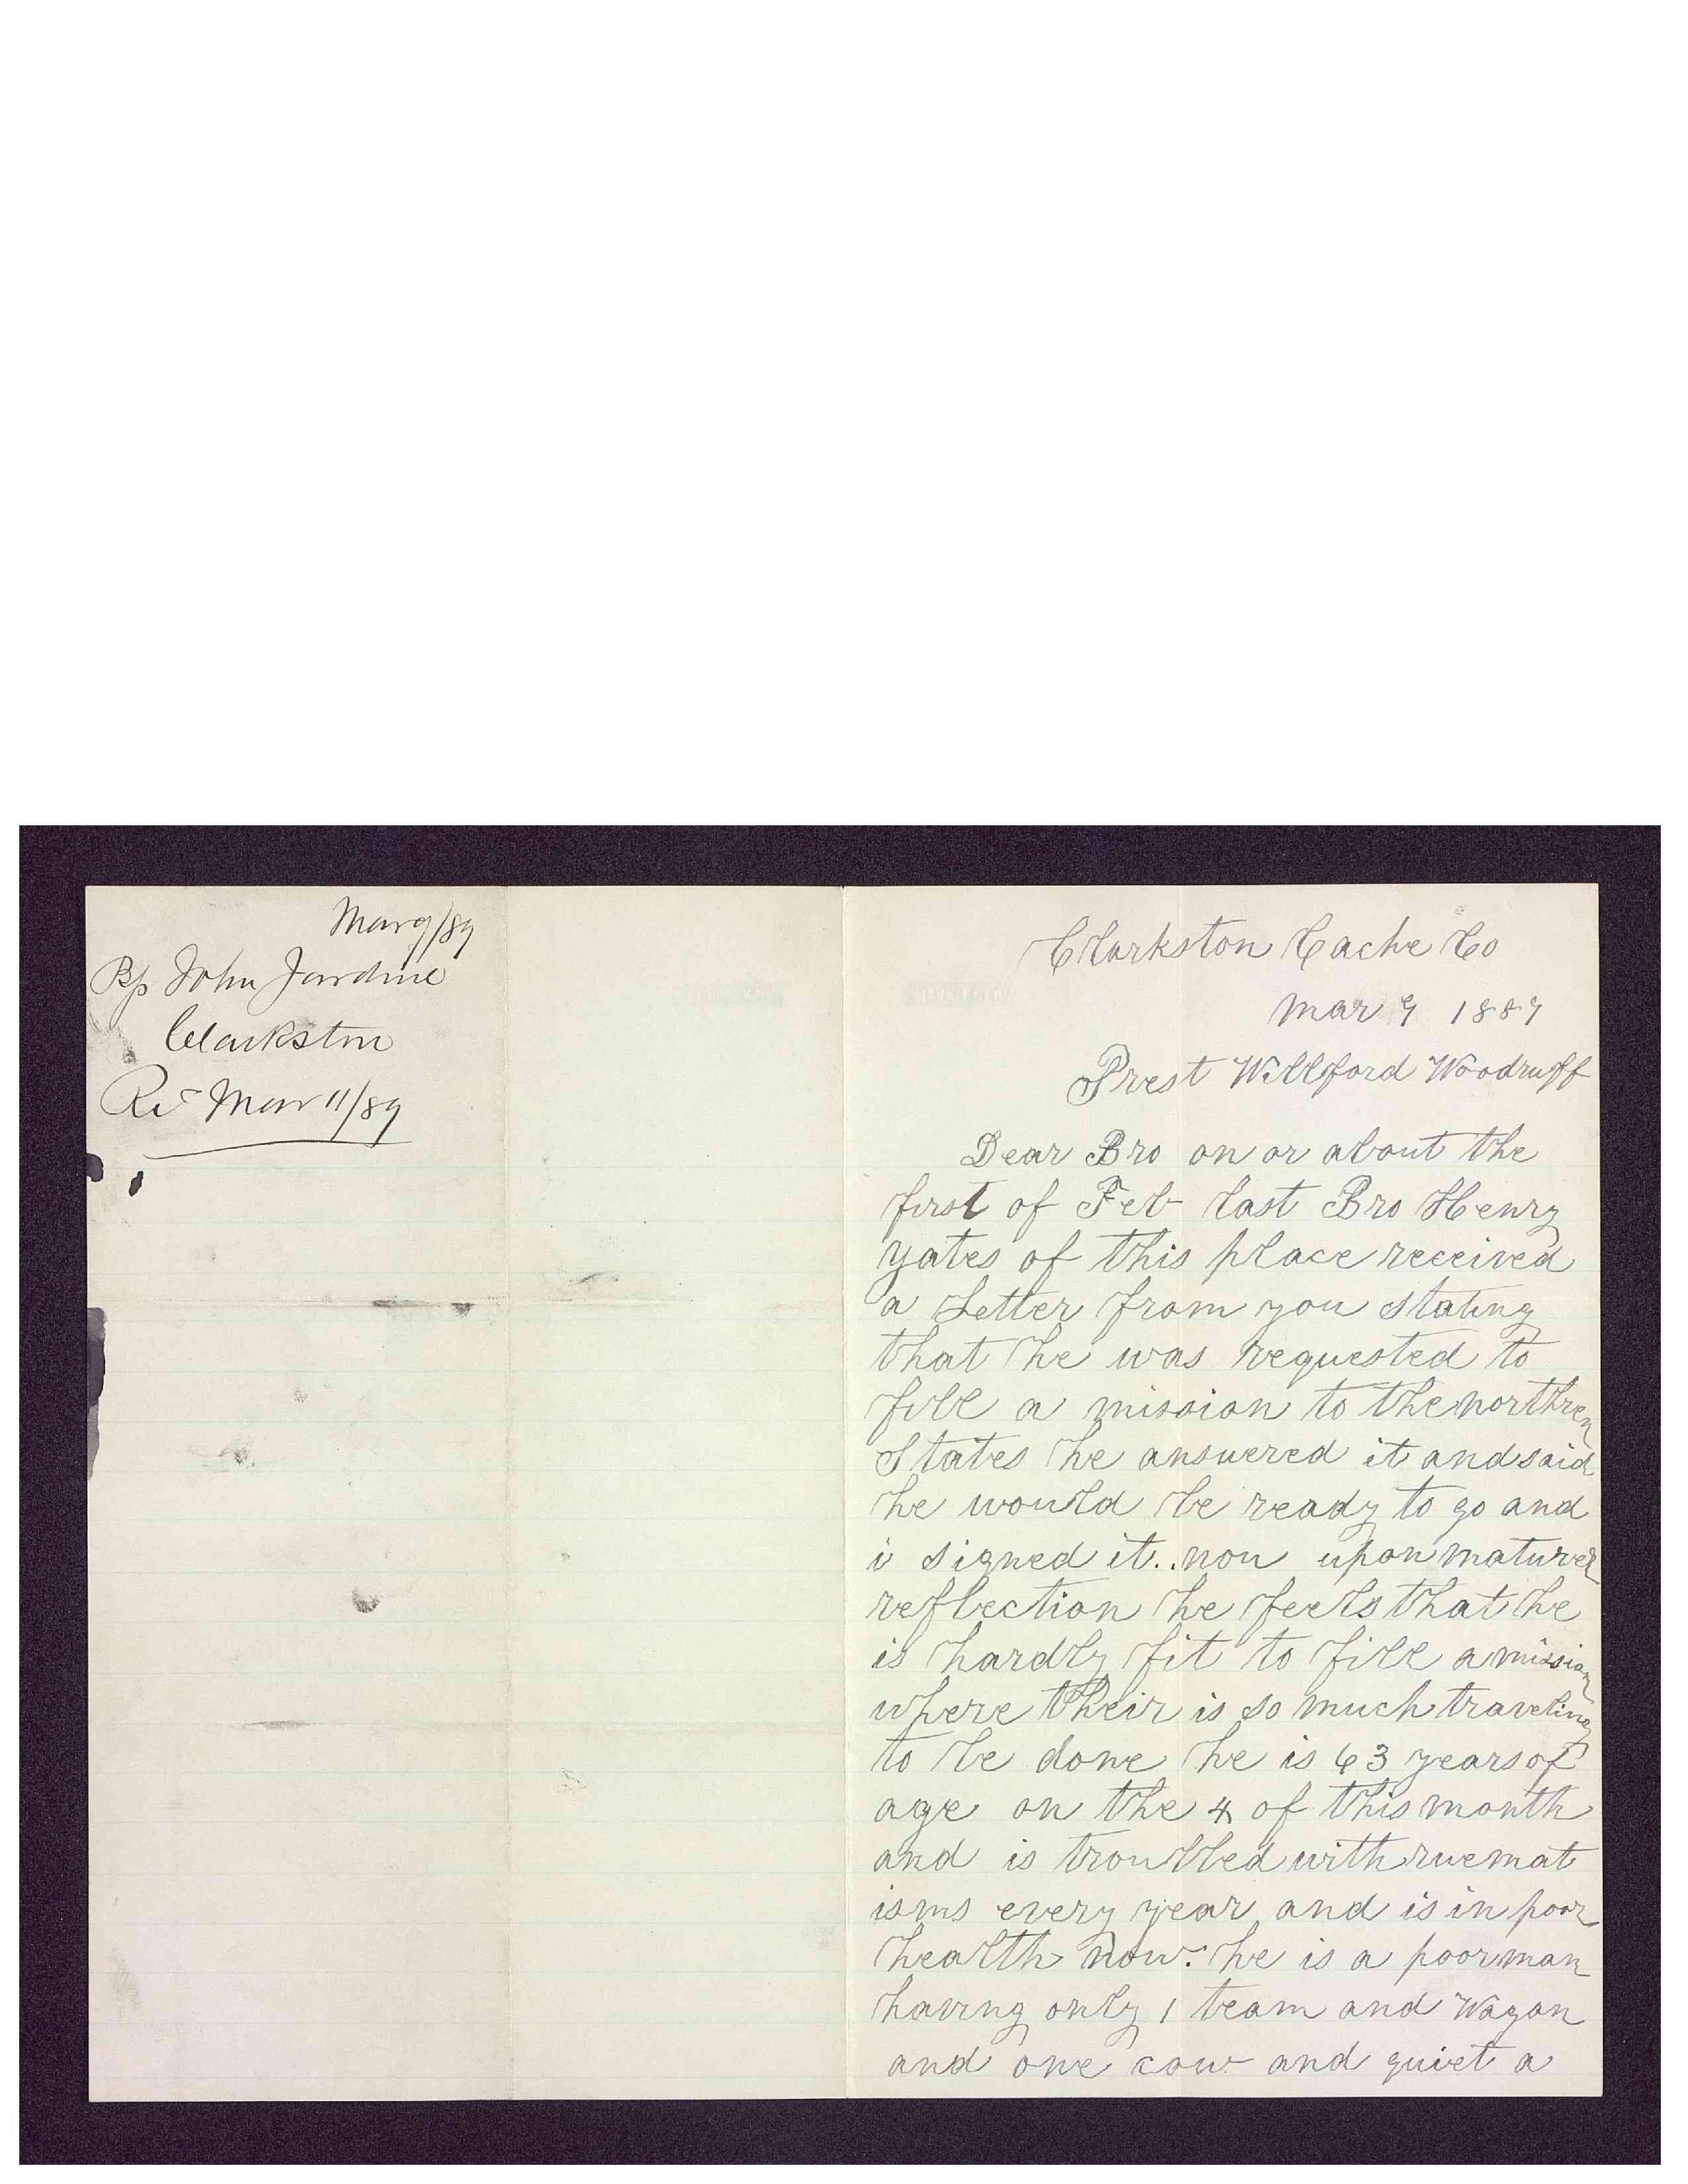 Mar 9/89
Bp John Jardine
Clarkston
Rec Mar 11/89
Clarkston Cache Co
Mar 9 1889
Prest Willford Woodruff
Dear Bro on or about the
first of Feb last Bro Henry
yates of this place received
a Letter from you stating
that he was requested to
fill a mission to the northren
States he answered it and said
he would be ready to go and
i signed it.. now upon matured
reflection he feels that he
is hardly fit to fill a mission
where their is so much traveling
to be done he is 63 years of
age on the 4 of this month
and is troubled with ruemat
isms every year and is in poor
health now. he is a poor man
having only 1 team and Wagon
and one cow and quiet a